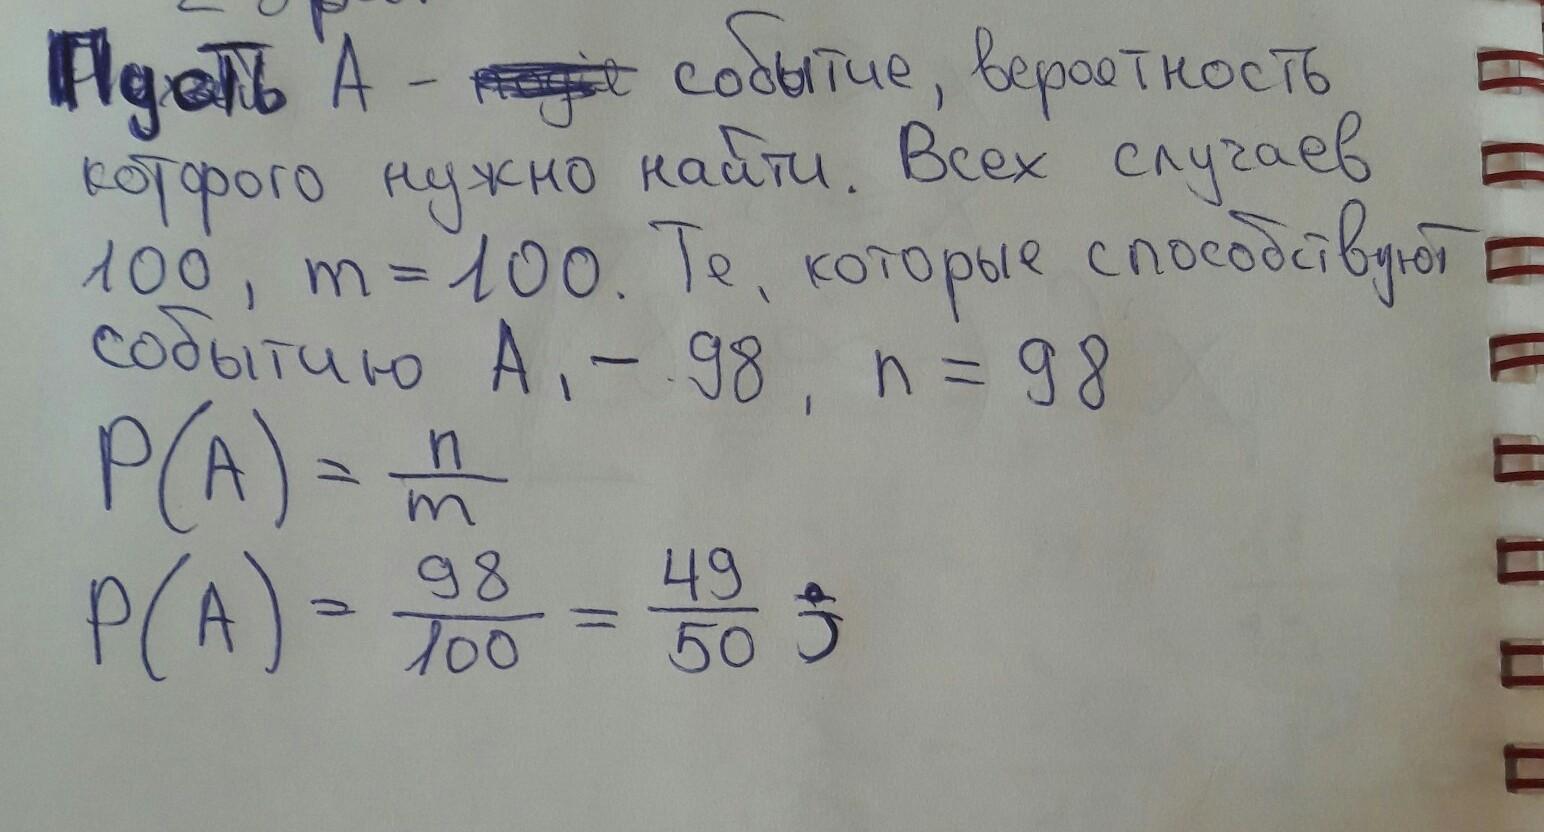 Пусть А - событие, вероятность
которого нужно найти. Всех случаев
100, m = 100. Те, которые способствуют
событию А, - 98, n = 98
P(A) = n/m
P(A) = 98/100 = 49/50